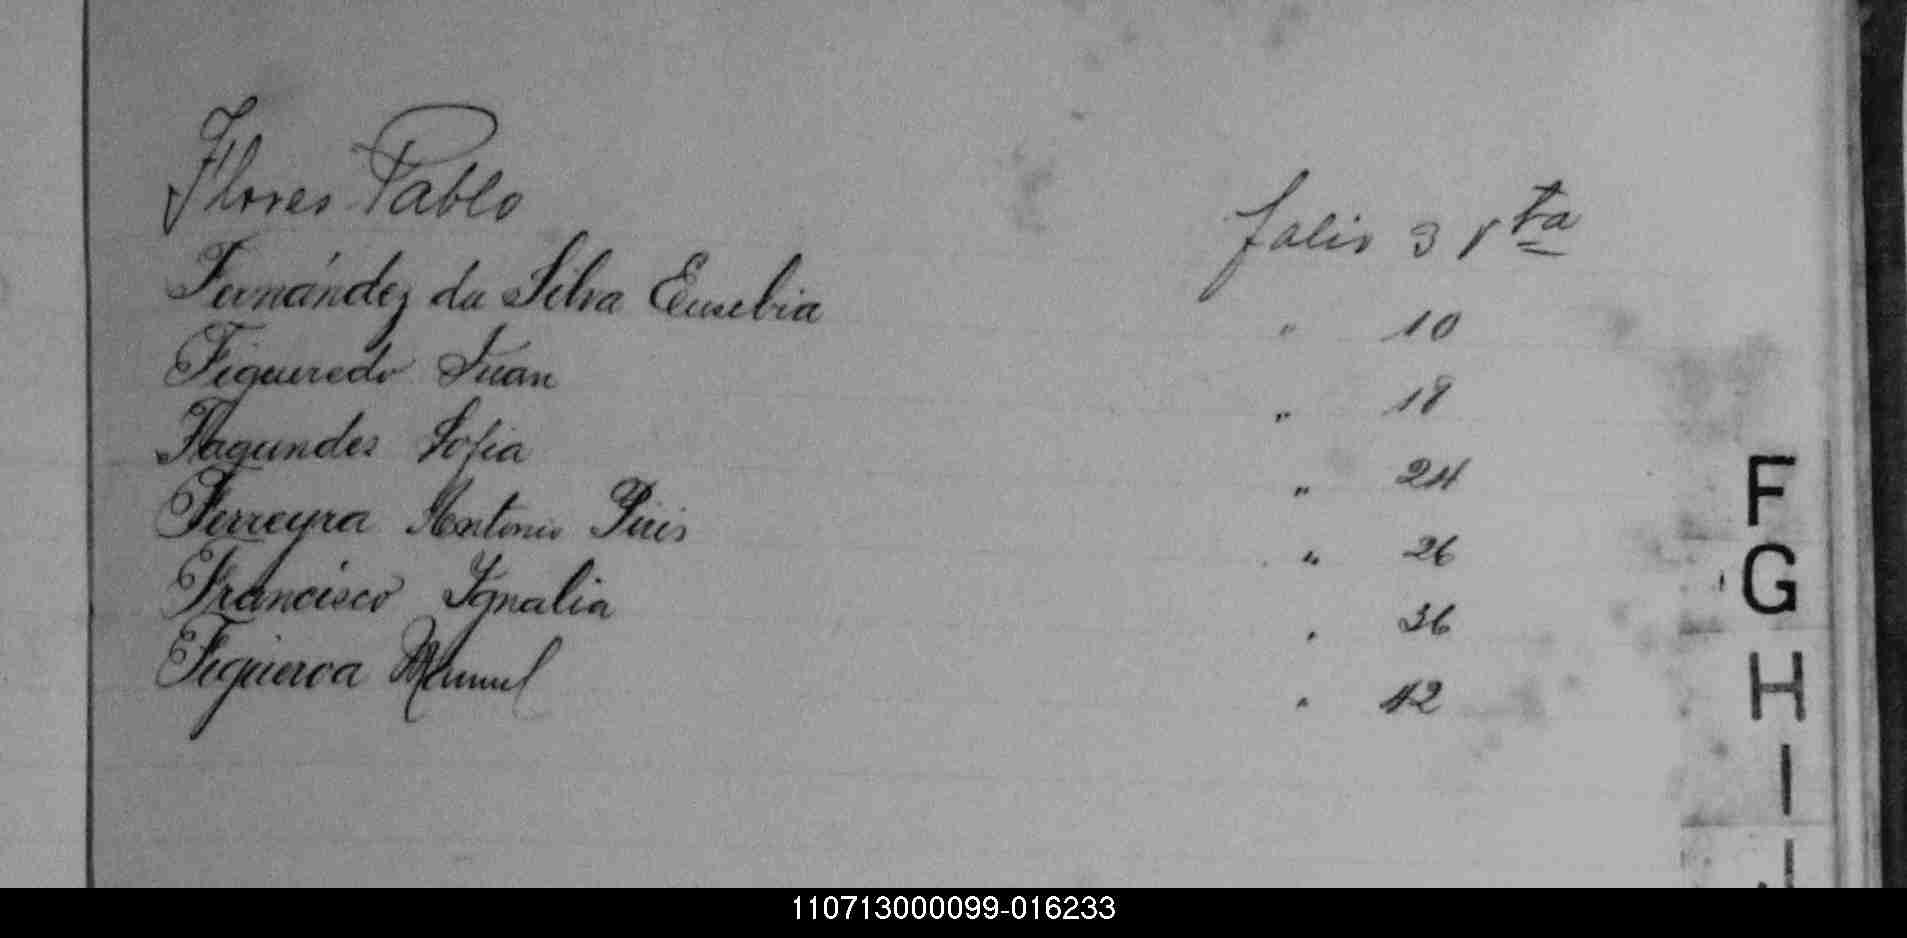 Flores Pablo folio 3 vta
Fernández da Silva Eusebia " 10
Figueredo Juan " 18
Fagundes Sofia " 24
Ferreyra Antonio Piris " 26
Francisco Ignalia " 36
Figueroa Manuel " 42
F
G
H
I
J
110713000099-016233